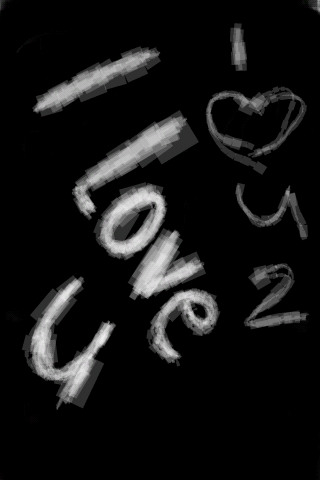 I
love
u
I
♡
u
2